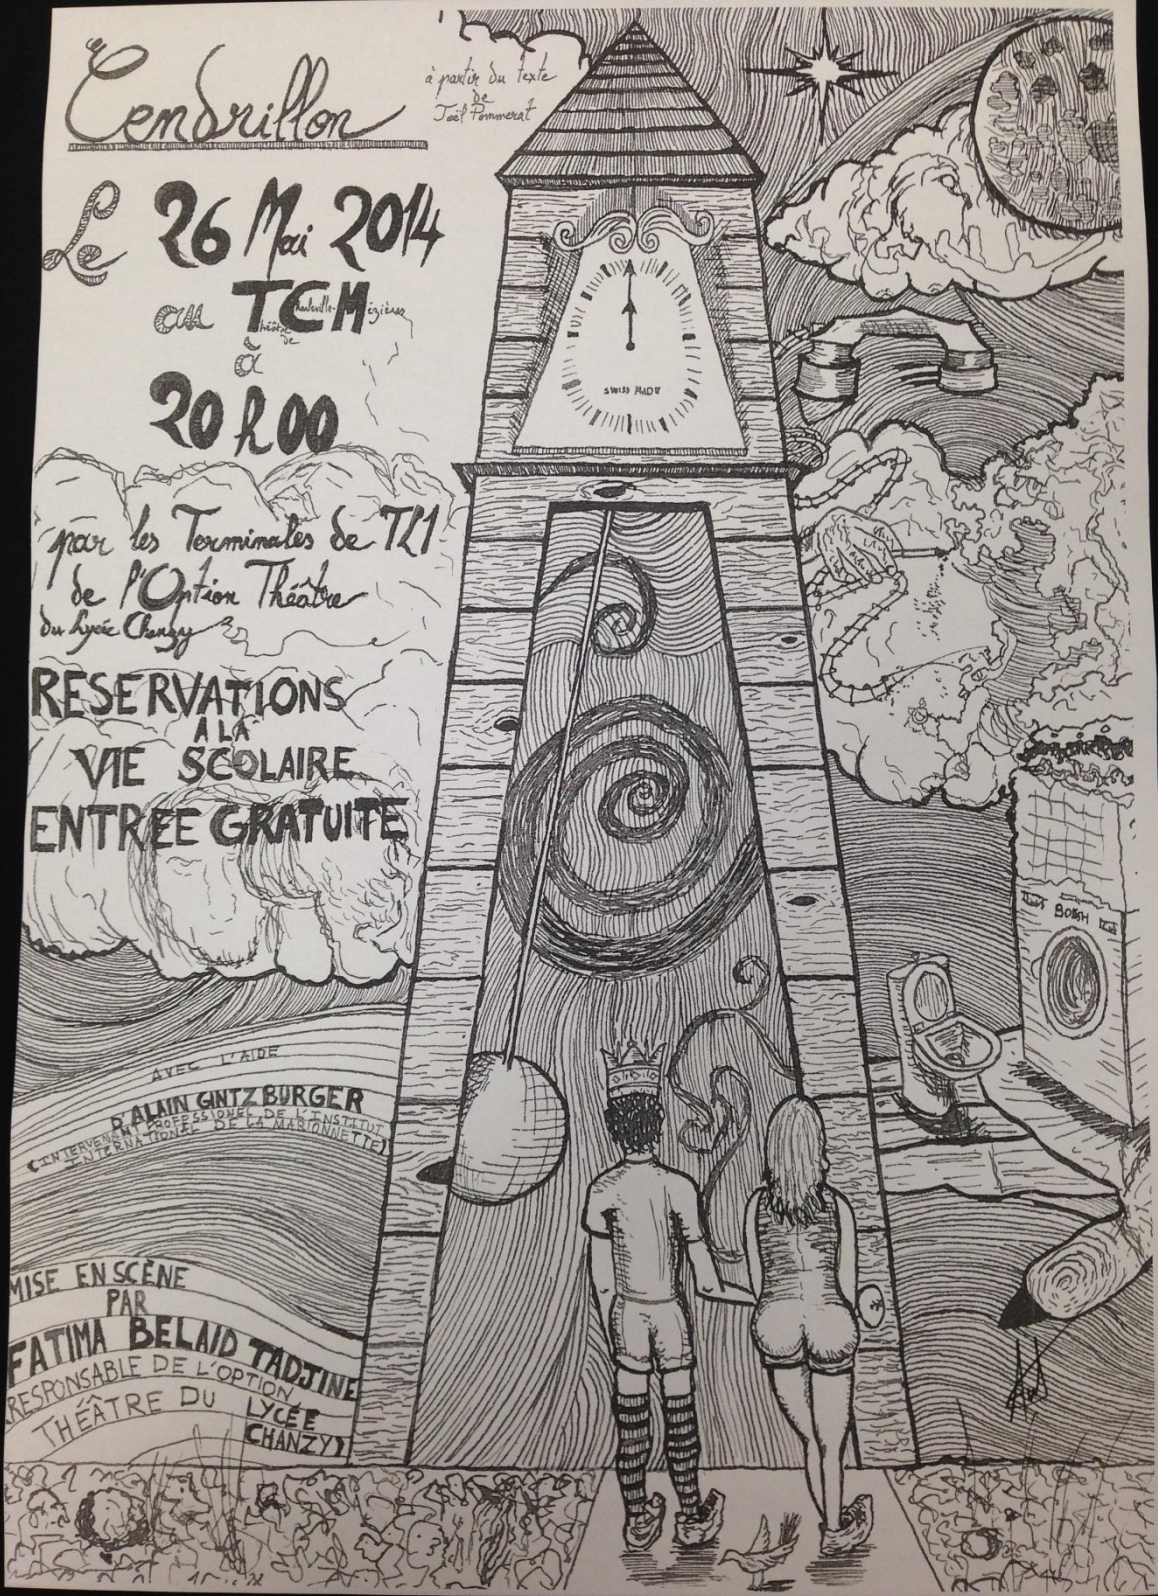 Cendrillon
à partir du texte
de
Joël Pommerat
Le 26 Mai 2014
au TCM
Théâtre de Charleville-Mézières
à
20h00
par les Terminales de TL1
de l'Option Théâtre
du Lycée Chanzy
RESERVATIONS
A LA
VIE SCOLAIRE
ENTREE GRATUITE
SWISS MADE
BOSH
AVEC L'AIDE
D'ALAIN GINTZBURGER
(INTERVENANT PROFESSIONEL DE L'INSTITUT
INTERNATIONEL DE LA MARIONNETTE)
MISE EN SCÈNE
PAR
FATIMA BELAID TADJINE
(RESPONSABLE DE L'OPTION
THÉÂTRE DU LYCÉE
CHANZY)